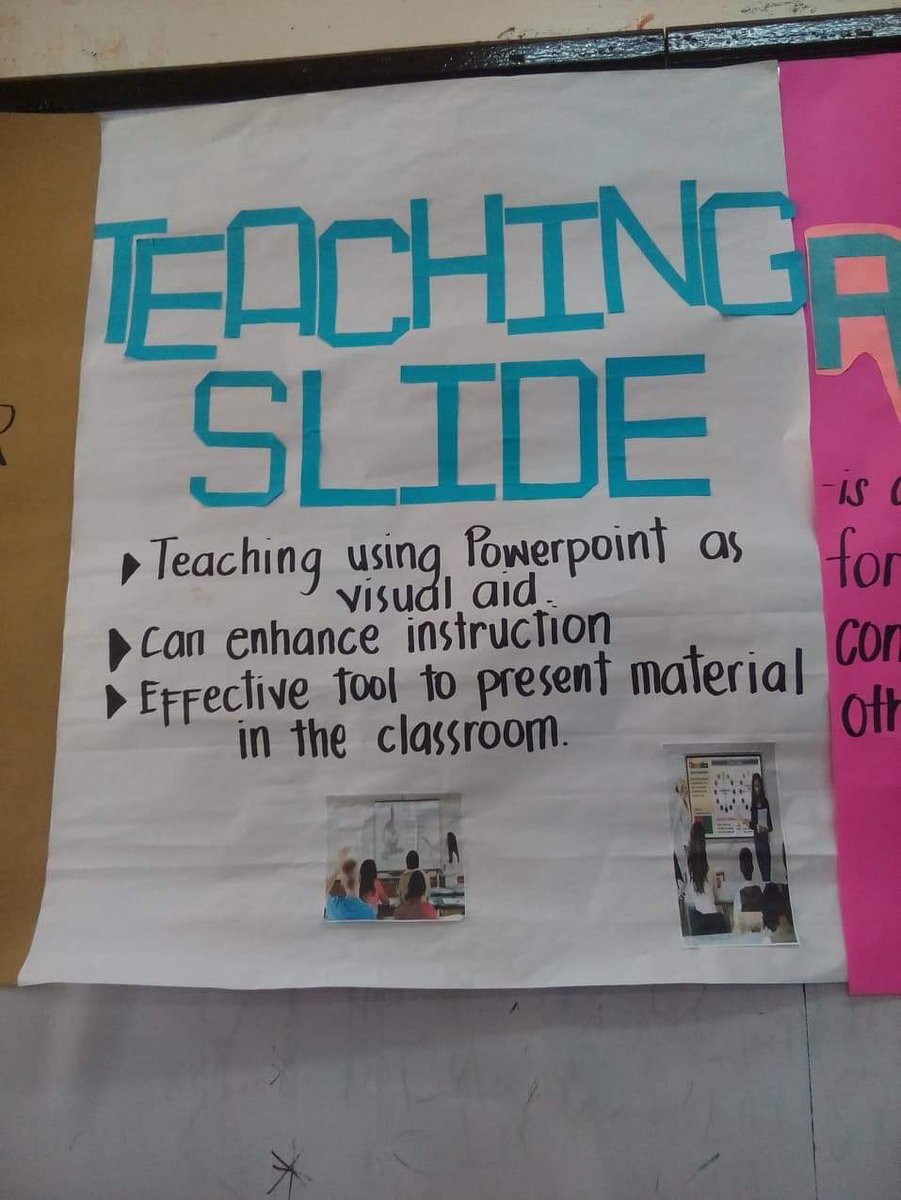 TEACHING
SLIDE
Teaching using Powerpoint as
visual aid.
Can enhance instruction
Effective tool to present material
in the classroom.
R
A
-is
for
con
oth